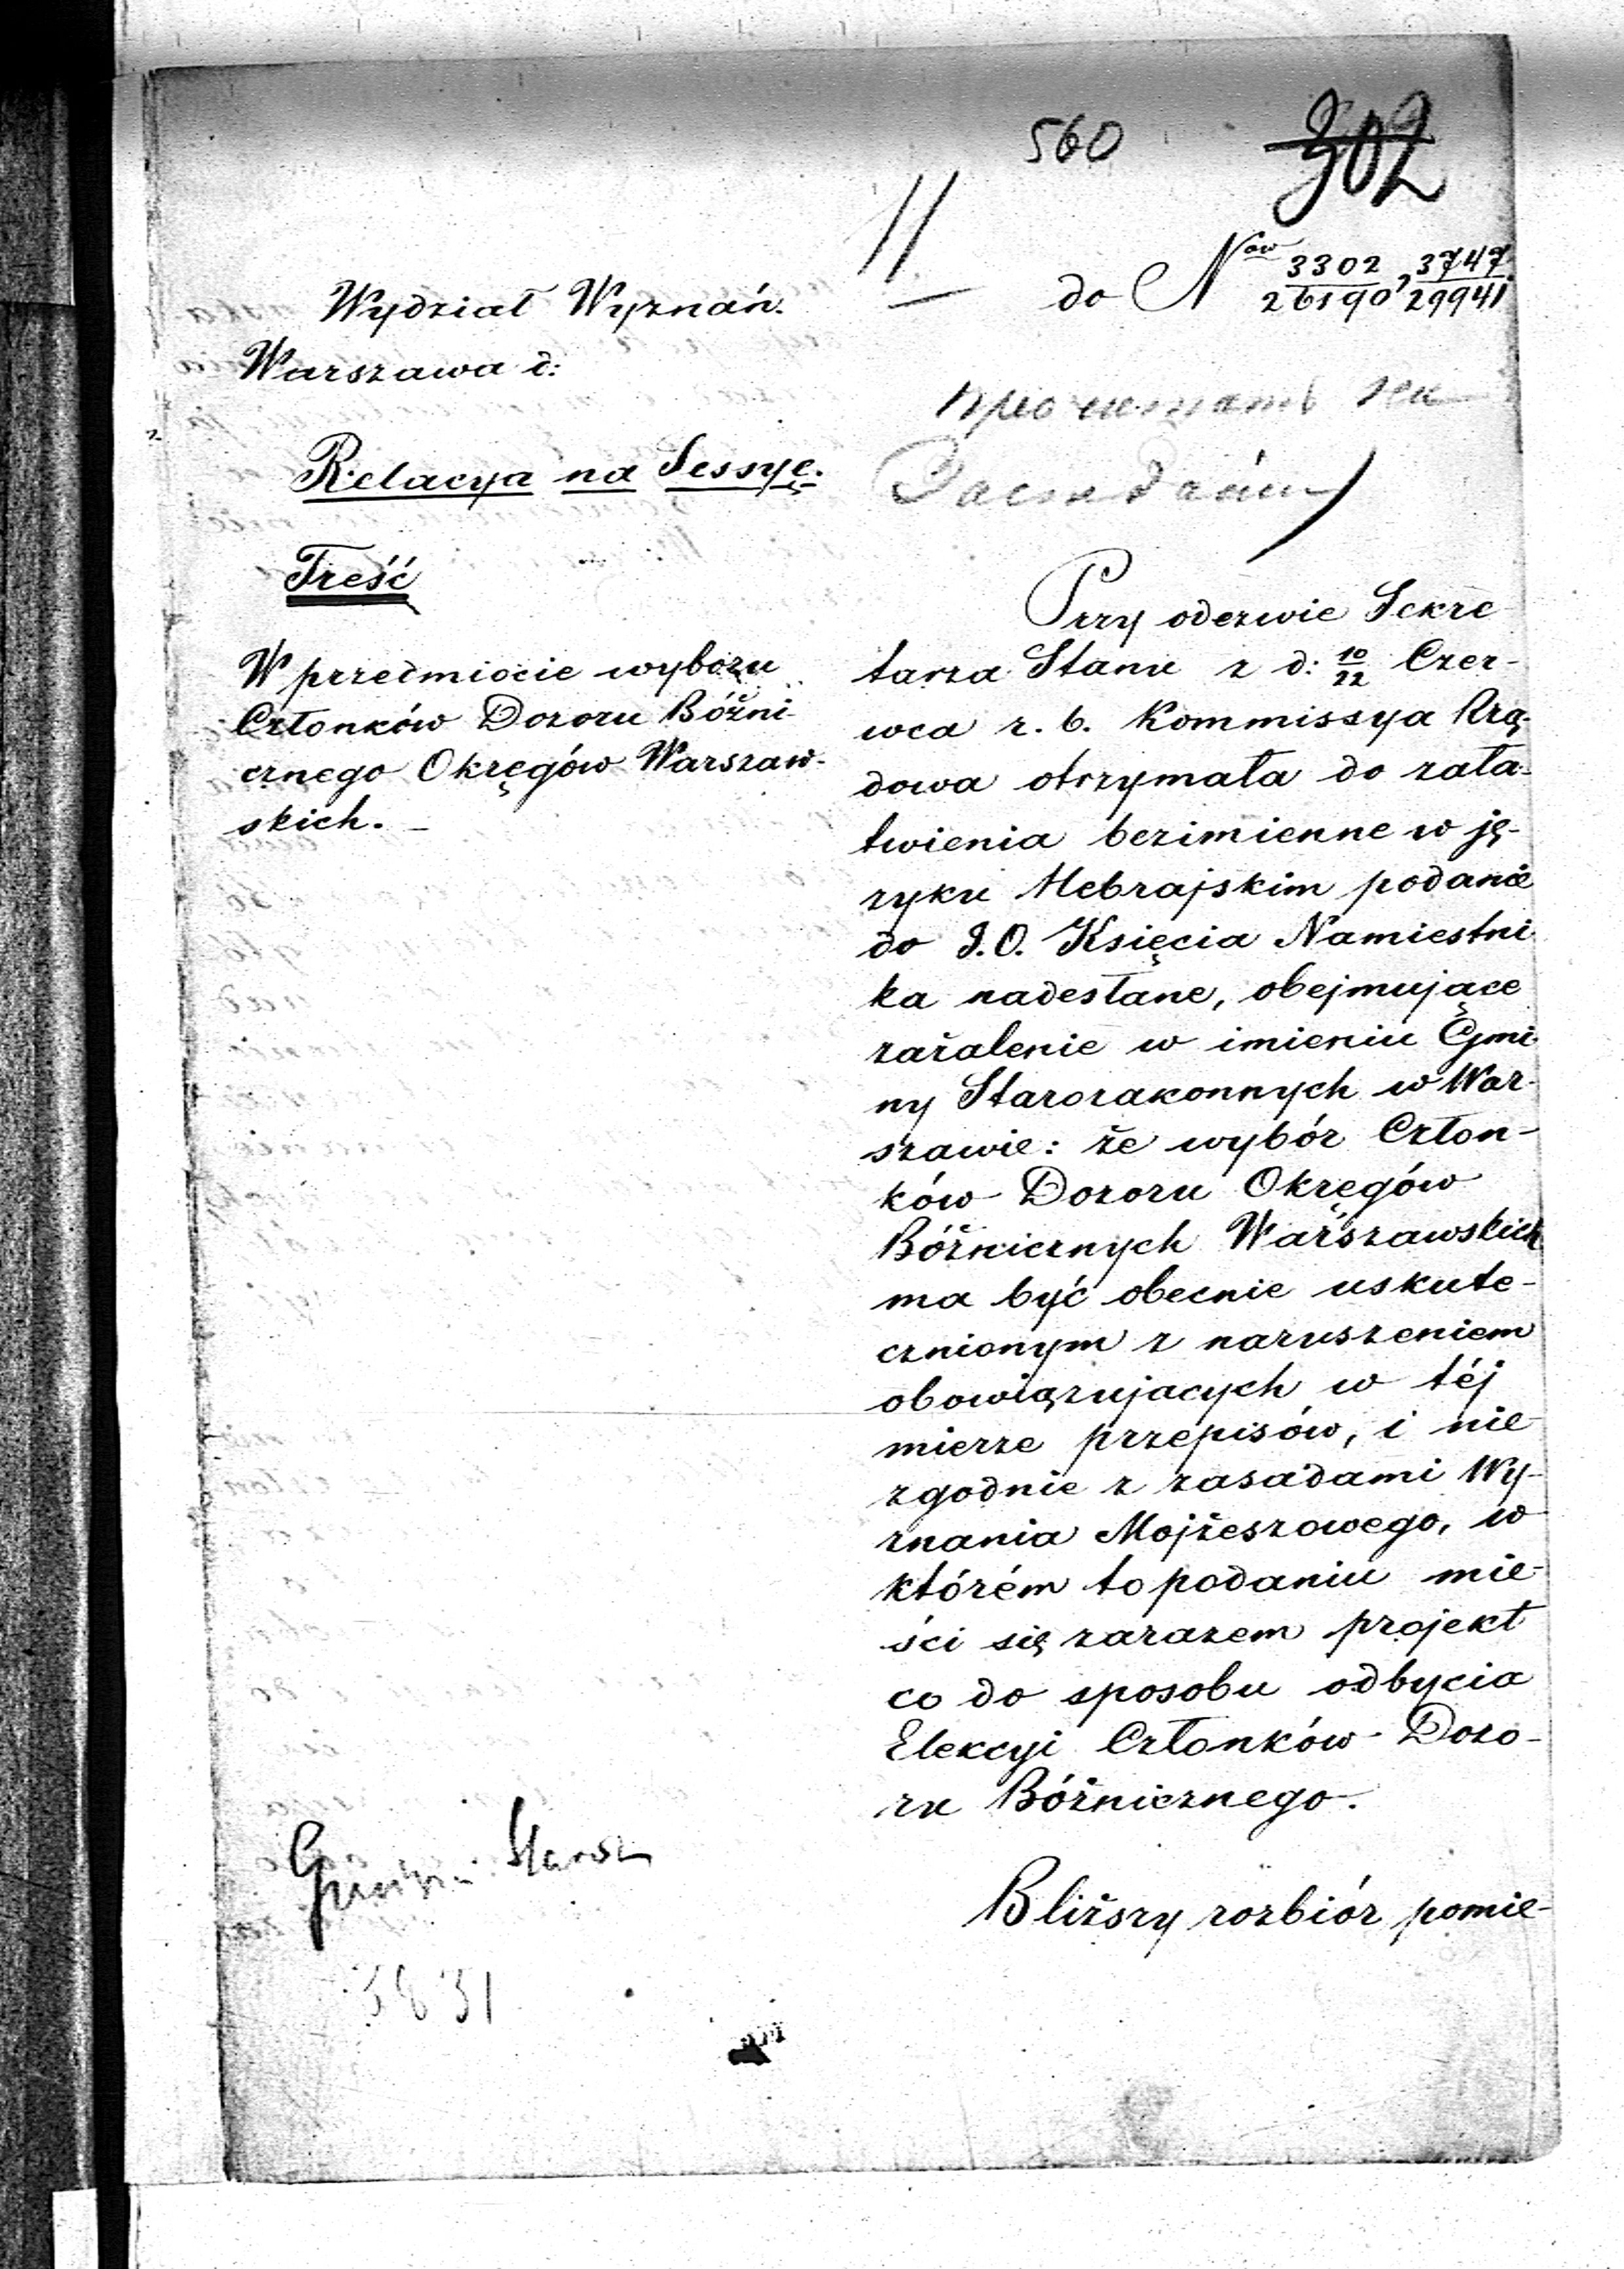 560
302
do Nów 3302/26190, 3747/29941
Wydział Wyznań.
Warszawa d:
Relacya na Sessyę.
Treść
W przedmiocie wyboru
Członków Dozoru Bóżni-
cznego Okręgów Warszaw-
skich.
Przy odezwie Sekre
tarza Stanu z d: 10/22 Czer-
wca r. b. Kommissya Rzą-
dowa otrzymała do zała-
twienia bezimienne w ję-
zyku Hebrajskim podanie
do J.O. Księcia Namiestni
ka nadesłane, obejmujące
zażalenie w imieniu Gmi-
ny Starozakonnych w War-
szawie: że wybór Człon-
ków Dozoru Okręgów
Bóżnicznych Warszawskich
ma być obecnie uskute-
cznionym z naruszeniem
obowiązujacych w téj
mierze przepisów, i nie
zgodnie z zasadami Wy-
znania Mojżeszowego, w
którém to podaniu mie-
ści się zarazem projekt
co do sposobu odbycia
Elekcyi Członków Dozo-
ru Bóżnicznego.
Bliższy rozbiór pomie-
3831